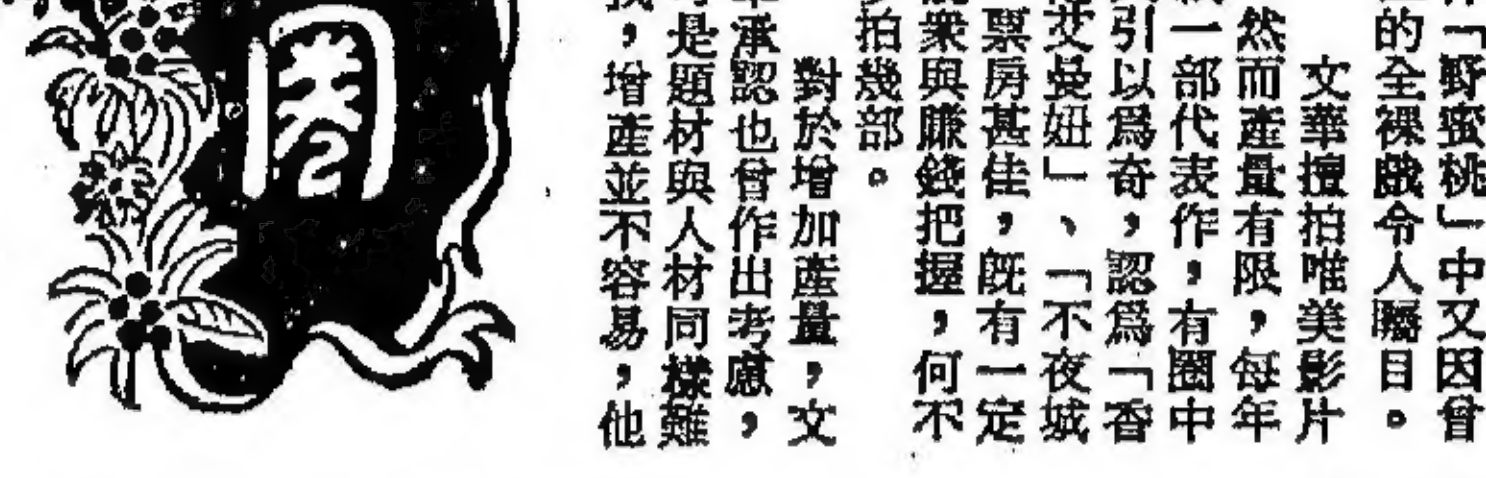 「野蜜桃」中又因曾
的全裸戲令人矚目。
文華擅拍唯美影片
然而產量有限，每年
一部代表作，有圈中
引以爲奇，認爲「香
艾曼妞」、「不夜城
票房甚佳，既有一定
衆與賺錢把握，何不
拍幾部。
對於增加產量，文
承認也曾作出考慮，
是題材與人材同樣難
，增產並不容易，他